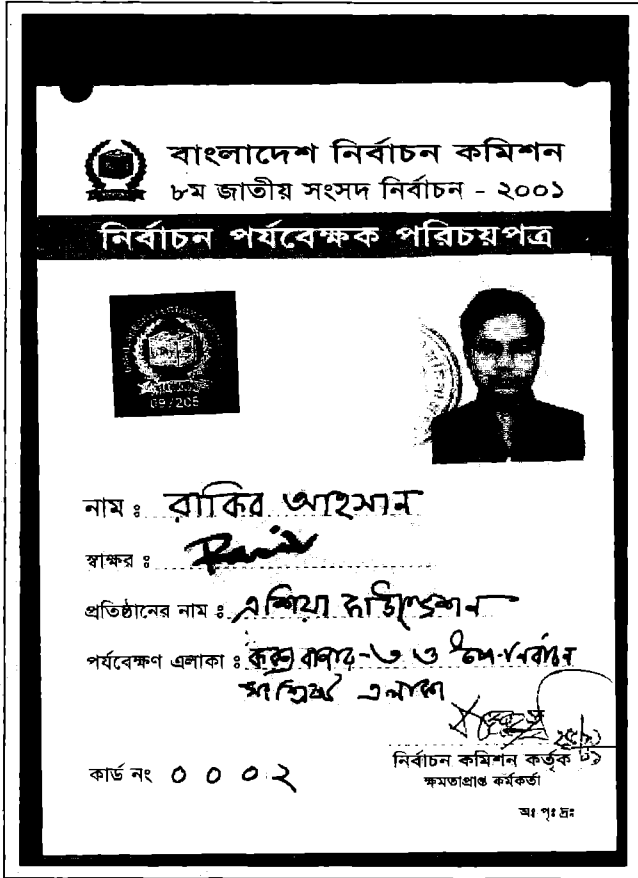 বাংলাদেশ নির্বাচন কমিশন
৮ম জাতীয় সংসদ নির্বাচন - ২০০১
নির্বাচন পর্যবেক্ষক পরিচয়পত্র
নাম ঃ রাকিব আহসান
স্বাক্ষর ঃ
প্রতিষ্ঠানের নাম ঃ এশিয়া ফাউন্ডেশন
পর্যবেক্ষণ এলাকা ঃ কক্স বাজার-৩ ও উপ-নির্বাচন
সংশ্লিষ্ট এলাকা
নির্বাচন কমিশন কর্তৃক
ক্ষমতাপ্রাপ্ত কর্মকর্তা
কার্ড নং ০ ০ ০ ২
অঃ পৃঃ দ্রঃ